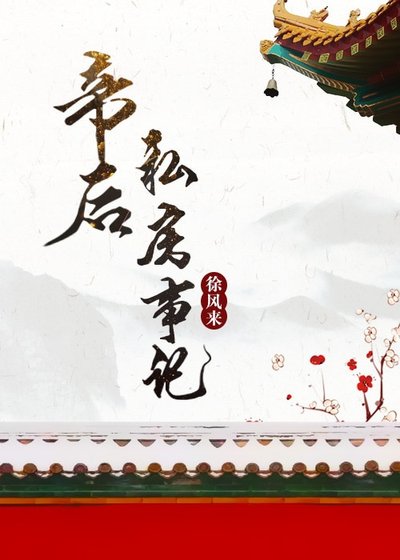 帝后
私房事记
徐风来